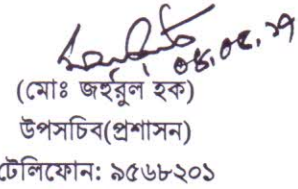 ০৪.০৫.১৭
(মোঃ জহুরুল হক)
উপসচিব(প্রশাসন)
টেলিফোন: ৯৫৬৮২০১